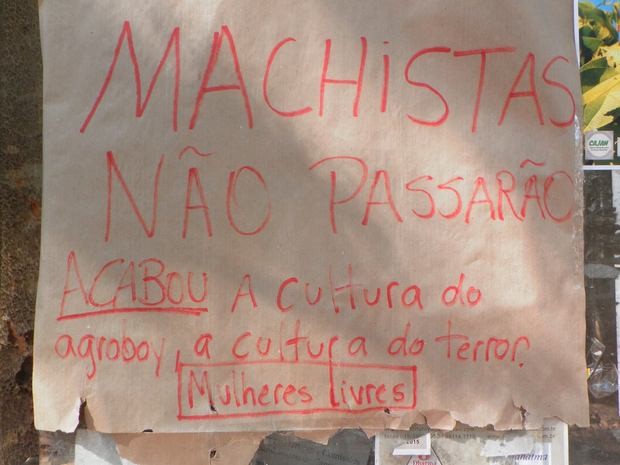 MACHISTAS
NÃO PASSARÃO
ACABOU A cultura do
agroboy, a cultura do terror.
Mulheres Livres
CAJAN
2015